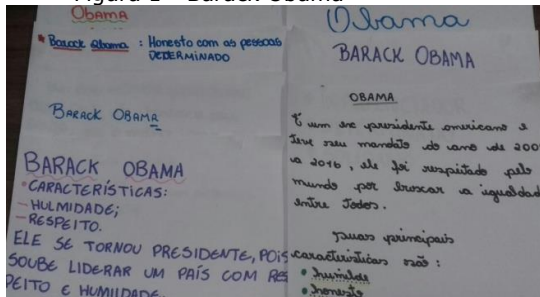 Figura 1 - Barack Obama
OBAMA
Barack Obama : Honesto com as pessoas
DETERMINADO
BARACK OBAMA
BARACK OBAMA
• CARACTERÍSTICAS:
- HULMIDADE;
- RESPEITO.
ELE SE TORNOU PRESIDENTE, POIS
SOUBE LIDERAR UM PAÍS COM RES
PEITO E HUMILDADE.
Obama
BARACK OBAMA
OBAMA
É um ex presidente americano e
teve seu mandato do ano de 200
a 2016, ele foi respeitado pelo
mundo por buscar a igualdad
entre Todos.
Suas principais
características são :
• humilde
• honesto